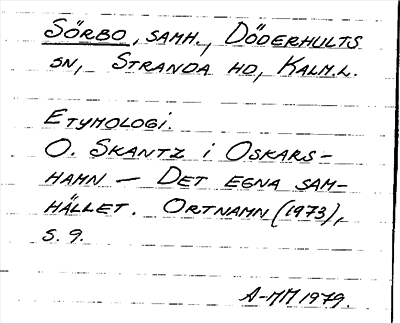 SÖRBO, SAMH., DÖDERHULTS
SN, STRANDA HD, KALM.L.
ETYMOLOGI.
O. SKANTZ i OSKARS-
HAMN – DET EGNA SAM-
HÄLLET. ORTNAMN (1973),
S. 9.
A-MM 1979.